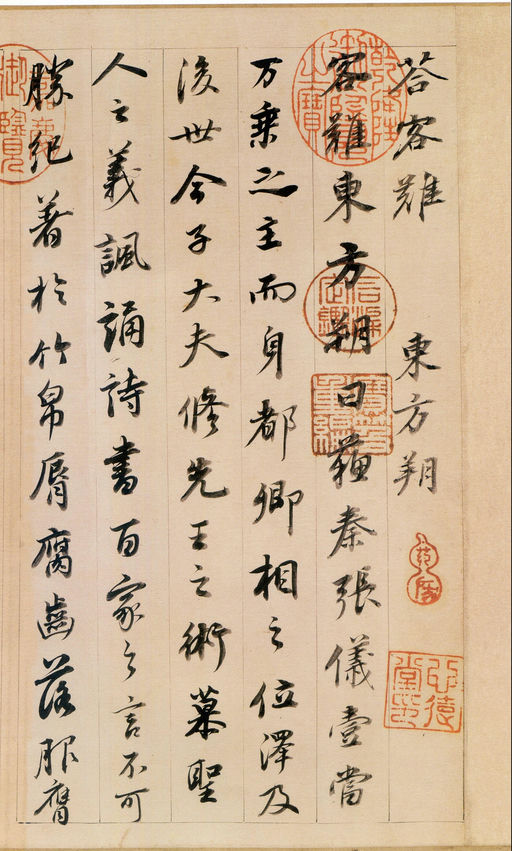 答客難 東方朔
客難東方朔曰蘇秦張儀壹當
万乗之主而身都卿相之位澤及
後世今子大夫修先王之術慕聖
人之義諷誦詩書百家之言不可
勝紀著於竹帛脣腐齒落服膺